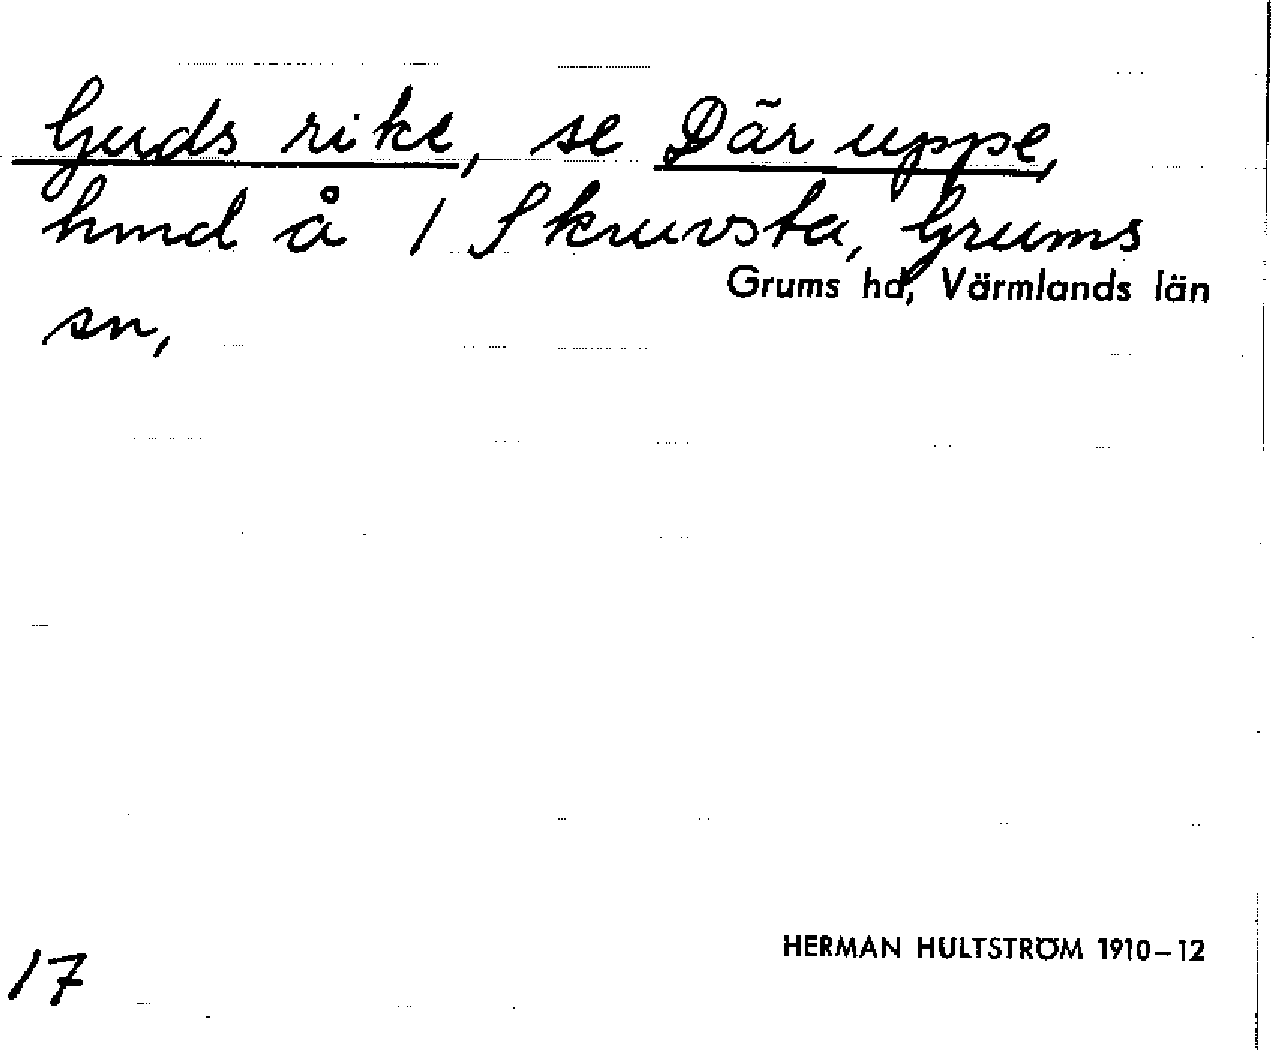 Guds rike, se Där uppe,
hmd å 1 Skruvsta, Grums
Grums hd, Värmlands län
sn,
HERMAN HULTSTRÖM 1910–12
17